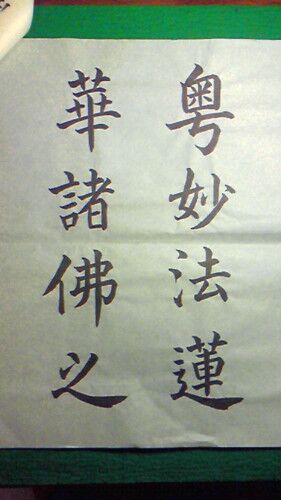 粤妙法蓮
華諸佛之